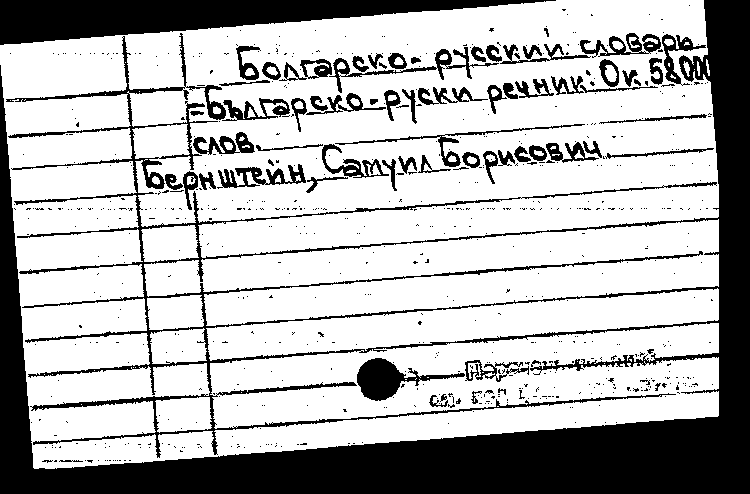 Болгарско-русский словарь
=Българско-руски речник: Ок. 58000
слов.
Бернштейн, Самуил Борисович.
см. под